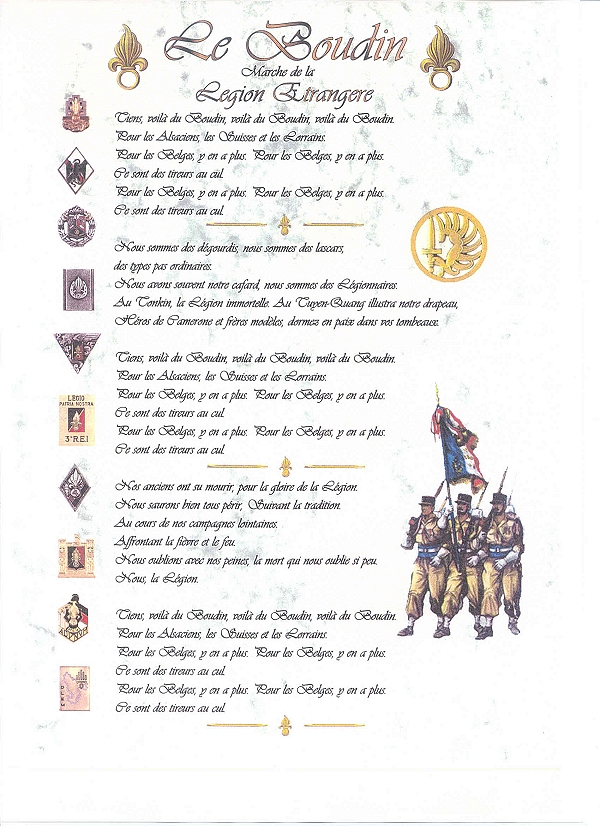 Le Boudin
Marche de la
Legion Etrangere
Tiens, voilà du Boudin, voilà du Boudin, voilà du Boudin.
Pour les Alsaciens, les Suisses et les Lorrains.
Pour les Belges, y en a plus. Pour les Belges, y en a plus.
Ce sont des tireurs au cul.
Pour les Belges, y en a plus. Pour les Belges, y en a plus.
Ce sont des tireurs au cul.
Nous sommes des dégourdis, nous sommes des lascars,
des types pas ordinaires.
Nous avons souvent notre cafard, nous sommes des Légionnaires.
Au Tonkin, la Légion immortelle. Au Tuyen-Quang illustra notre drapeau,
Héros de Camerone et frères modèles, dormez en paix dans vos tombeaux.
Tiens, voilà du Boudin, voilà du Boudin, voilà du Boudin.
Pour les Alsaciens, les Suisses et les Lorrains.
Pour les Belges, y en a plus. Pour les Belges, y en a plus.
Ce sont des tireurs au cul.
Pour les Belges, y en a plus. Pour les Belges, y en a plus.
Ce sont des tireurs au cul.
LEGIO
PATRIA NOSTRA
3°REI
Nos anciens ont su mourir, pour la gloire de la Légion.
Nous saurons bien tous périr, Suivant la tradition.
Au cours de nos campagnes lointaines.
Affrontant la fièvre et le feu.
Nous oublions avec nos peines, la mort qui nous oublie si peu.
Nous, la Légion.
Tiens, voilà du Boudin, voilà du Boudin, voilà du Boudin.
Pour les Alsaciens, les Suisses et les Lorrains.
Pour les Belges, y en a plus. Pour les Belges, y en a plus.
Ce sont des tireurs au cul.
Pour les Belges, y en a plus. Pour les Belges, y en a plus.
Ce sont des tireurs au cul.